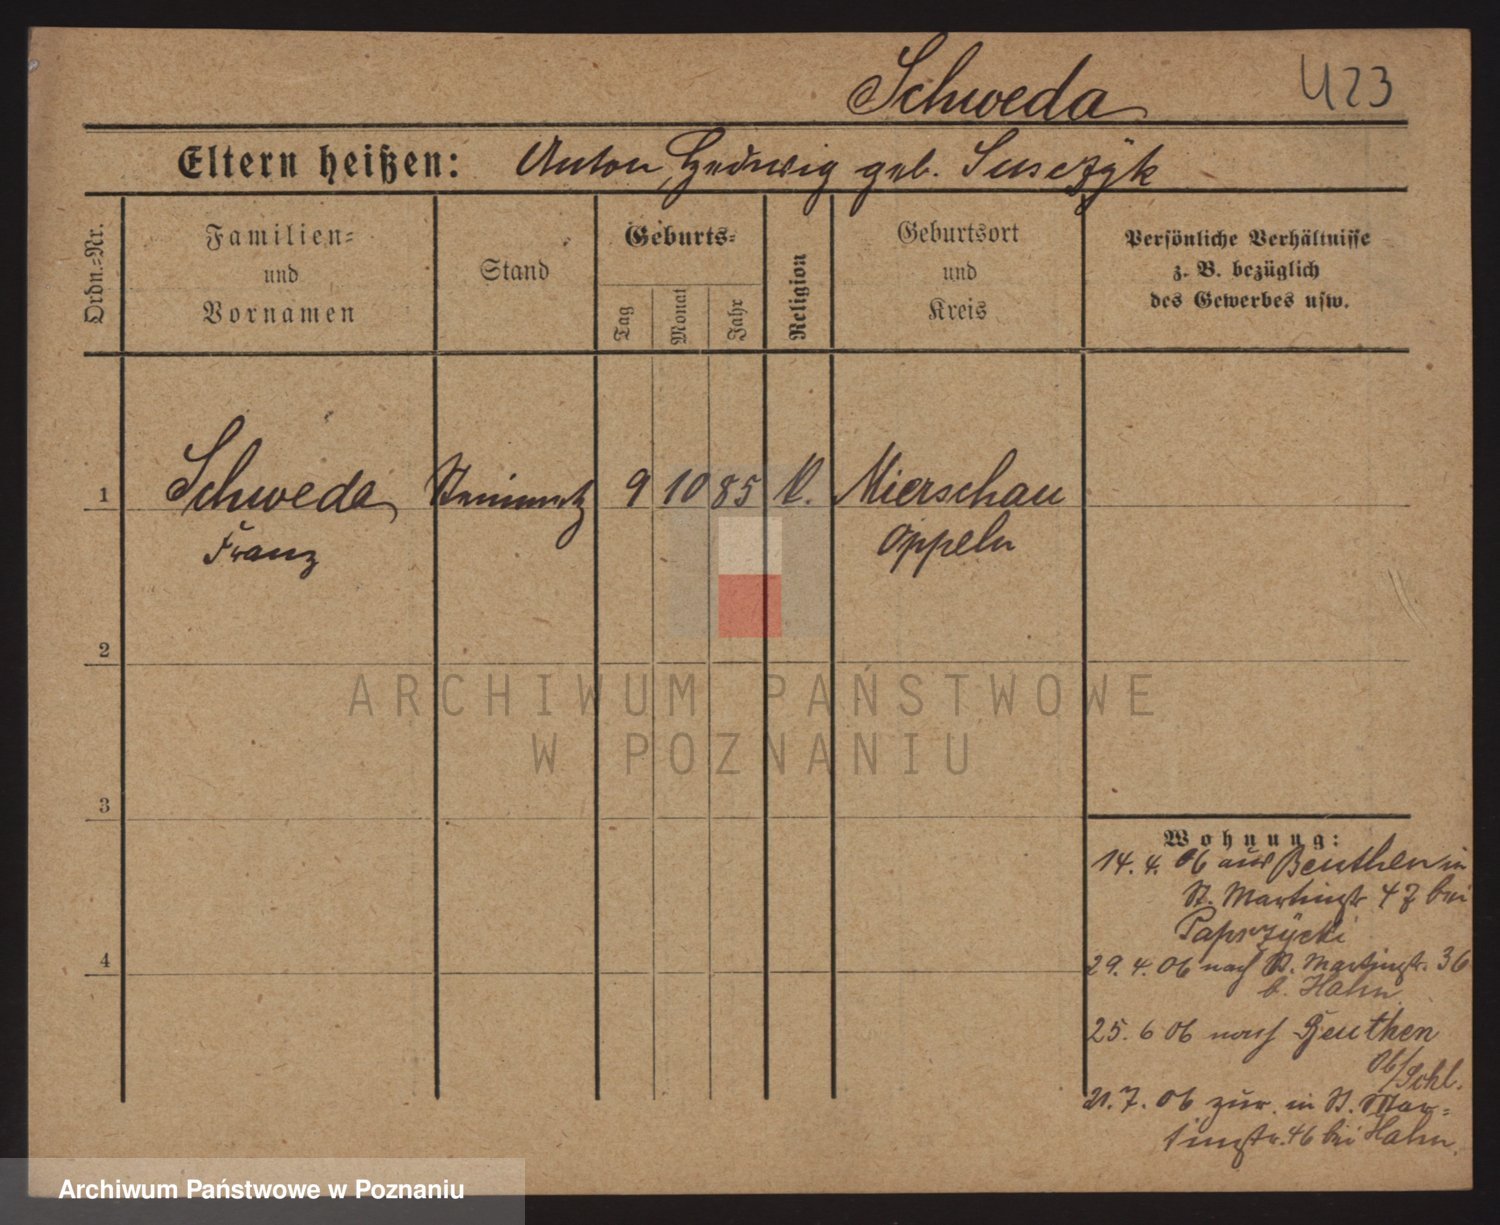 Schweda 423
Eltern heißen: Anton, Hedwig geb. Susczÿk
Ordn.-Nr.
Familien-
und
Vornamen
Stand
Geburts-
Tag
Monat
Jahr
Religion
Geburtsort
und
Kreis
Persönliche Verhältnisse
z. B. bezüglich
des Gewerbes usw.
1 Schweda Steinmetz 9 10 85 K. Mierschau
Franz Oppeln
2
ARCHIWUM PAŃSTWOWE
W POZNANIU
3
Wohnung:
14. 4. 06 aus Beuthen in
St. Martinstr 47 bei
Paprzÿcki
4
29. 4. 06 nach St. Martinstr. 36
b. Hahn
25. 6 06 nach Beuthen
Ob/Schl.
21. 7. 06 zur. in St. Mar-
tinstr. 46 bei Hahn.
Archiwum Państwowe w Poznaniu